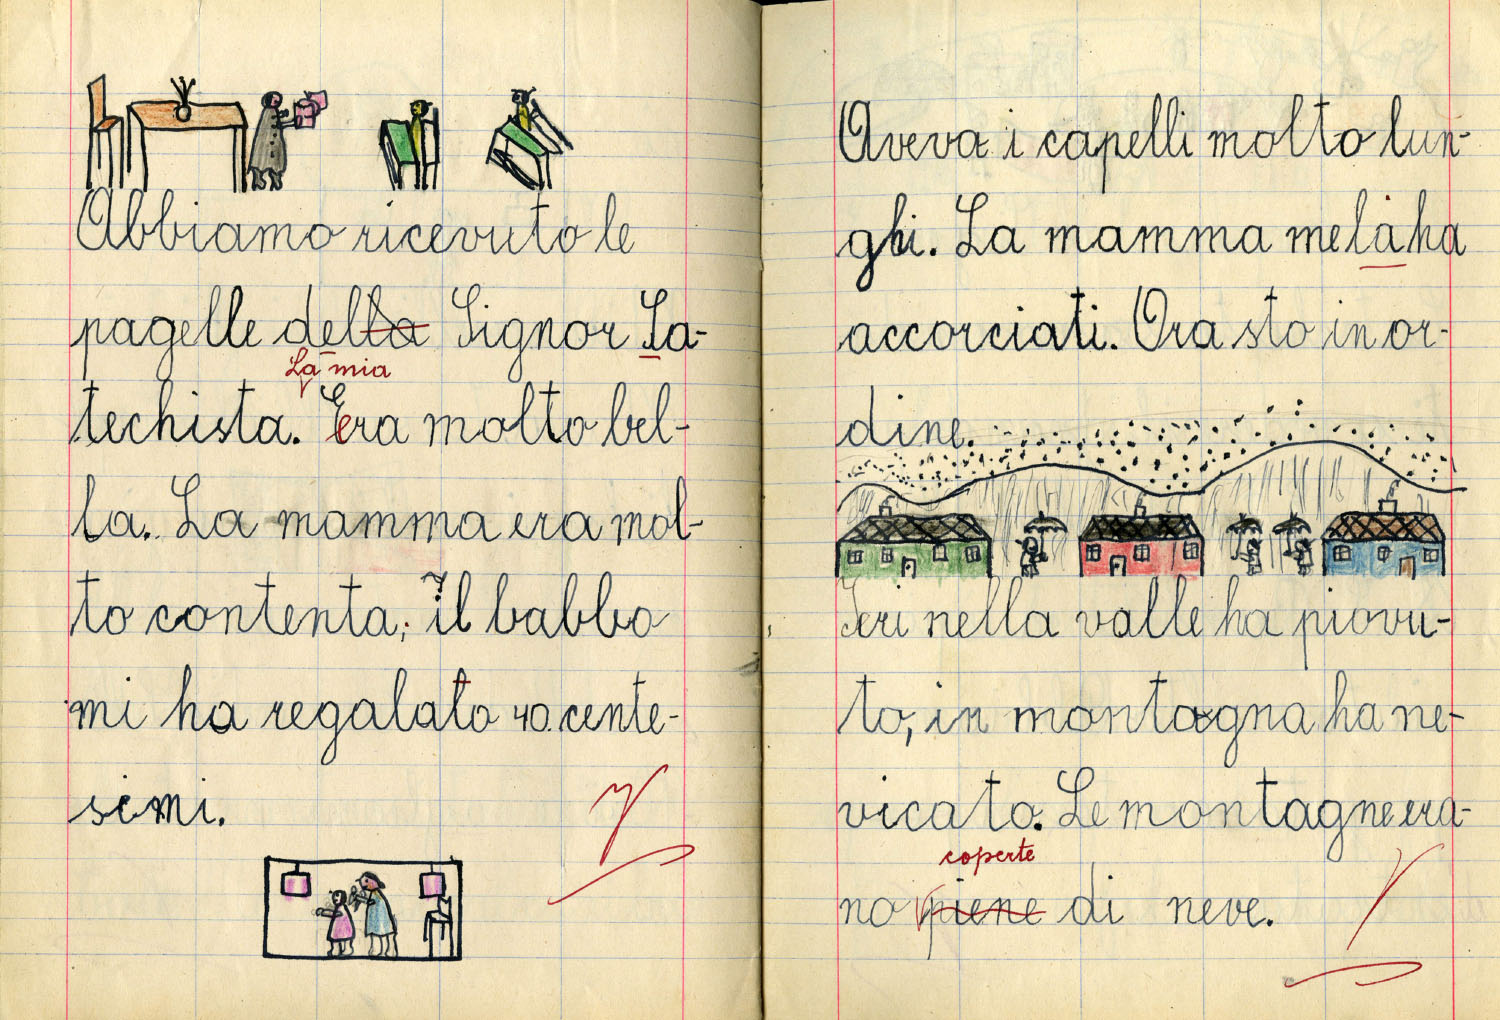 Abbiamo ricevuto le
pagelle della Signor Ca-
La mia
techista. Era molto bel-
la. La mamma era mol-
to contenta; il babbo
mi ha regalato 40. cente-
simi.
Aveva i capelli molto lun-
ghi. La mamma me là ha
accorciati. Ora sto in or-
dine.
Ieri nella valle ha piovu-
to, in montagna ha ne-
vicato. Le montagne era-
coperte
no piene di neve.